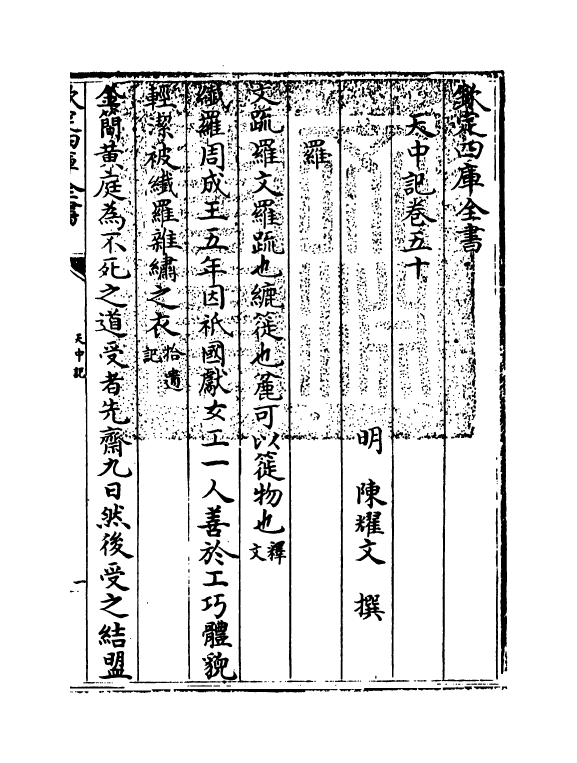 欽定四庫全書
天中記卷五十
明 陳耀文 撰
羅
文疏羅文羅疏也纚簁也麄可以簁物也釋文
纖羅周成王五年因祇國獻女工一人善於工巧體貌
輕潔被纖羅雜繡之衣拾遺記
金簡黃庭為不死之道受者先齋九日然後受之結盟
欽定四庫全書
天中記
一